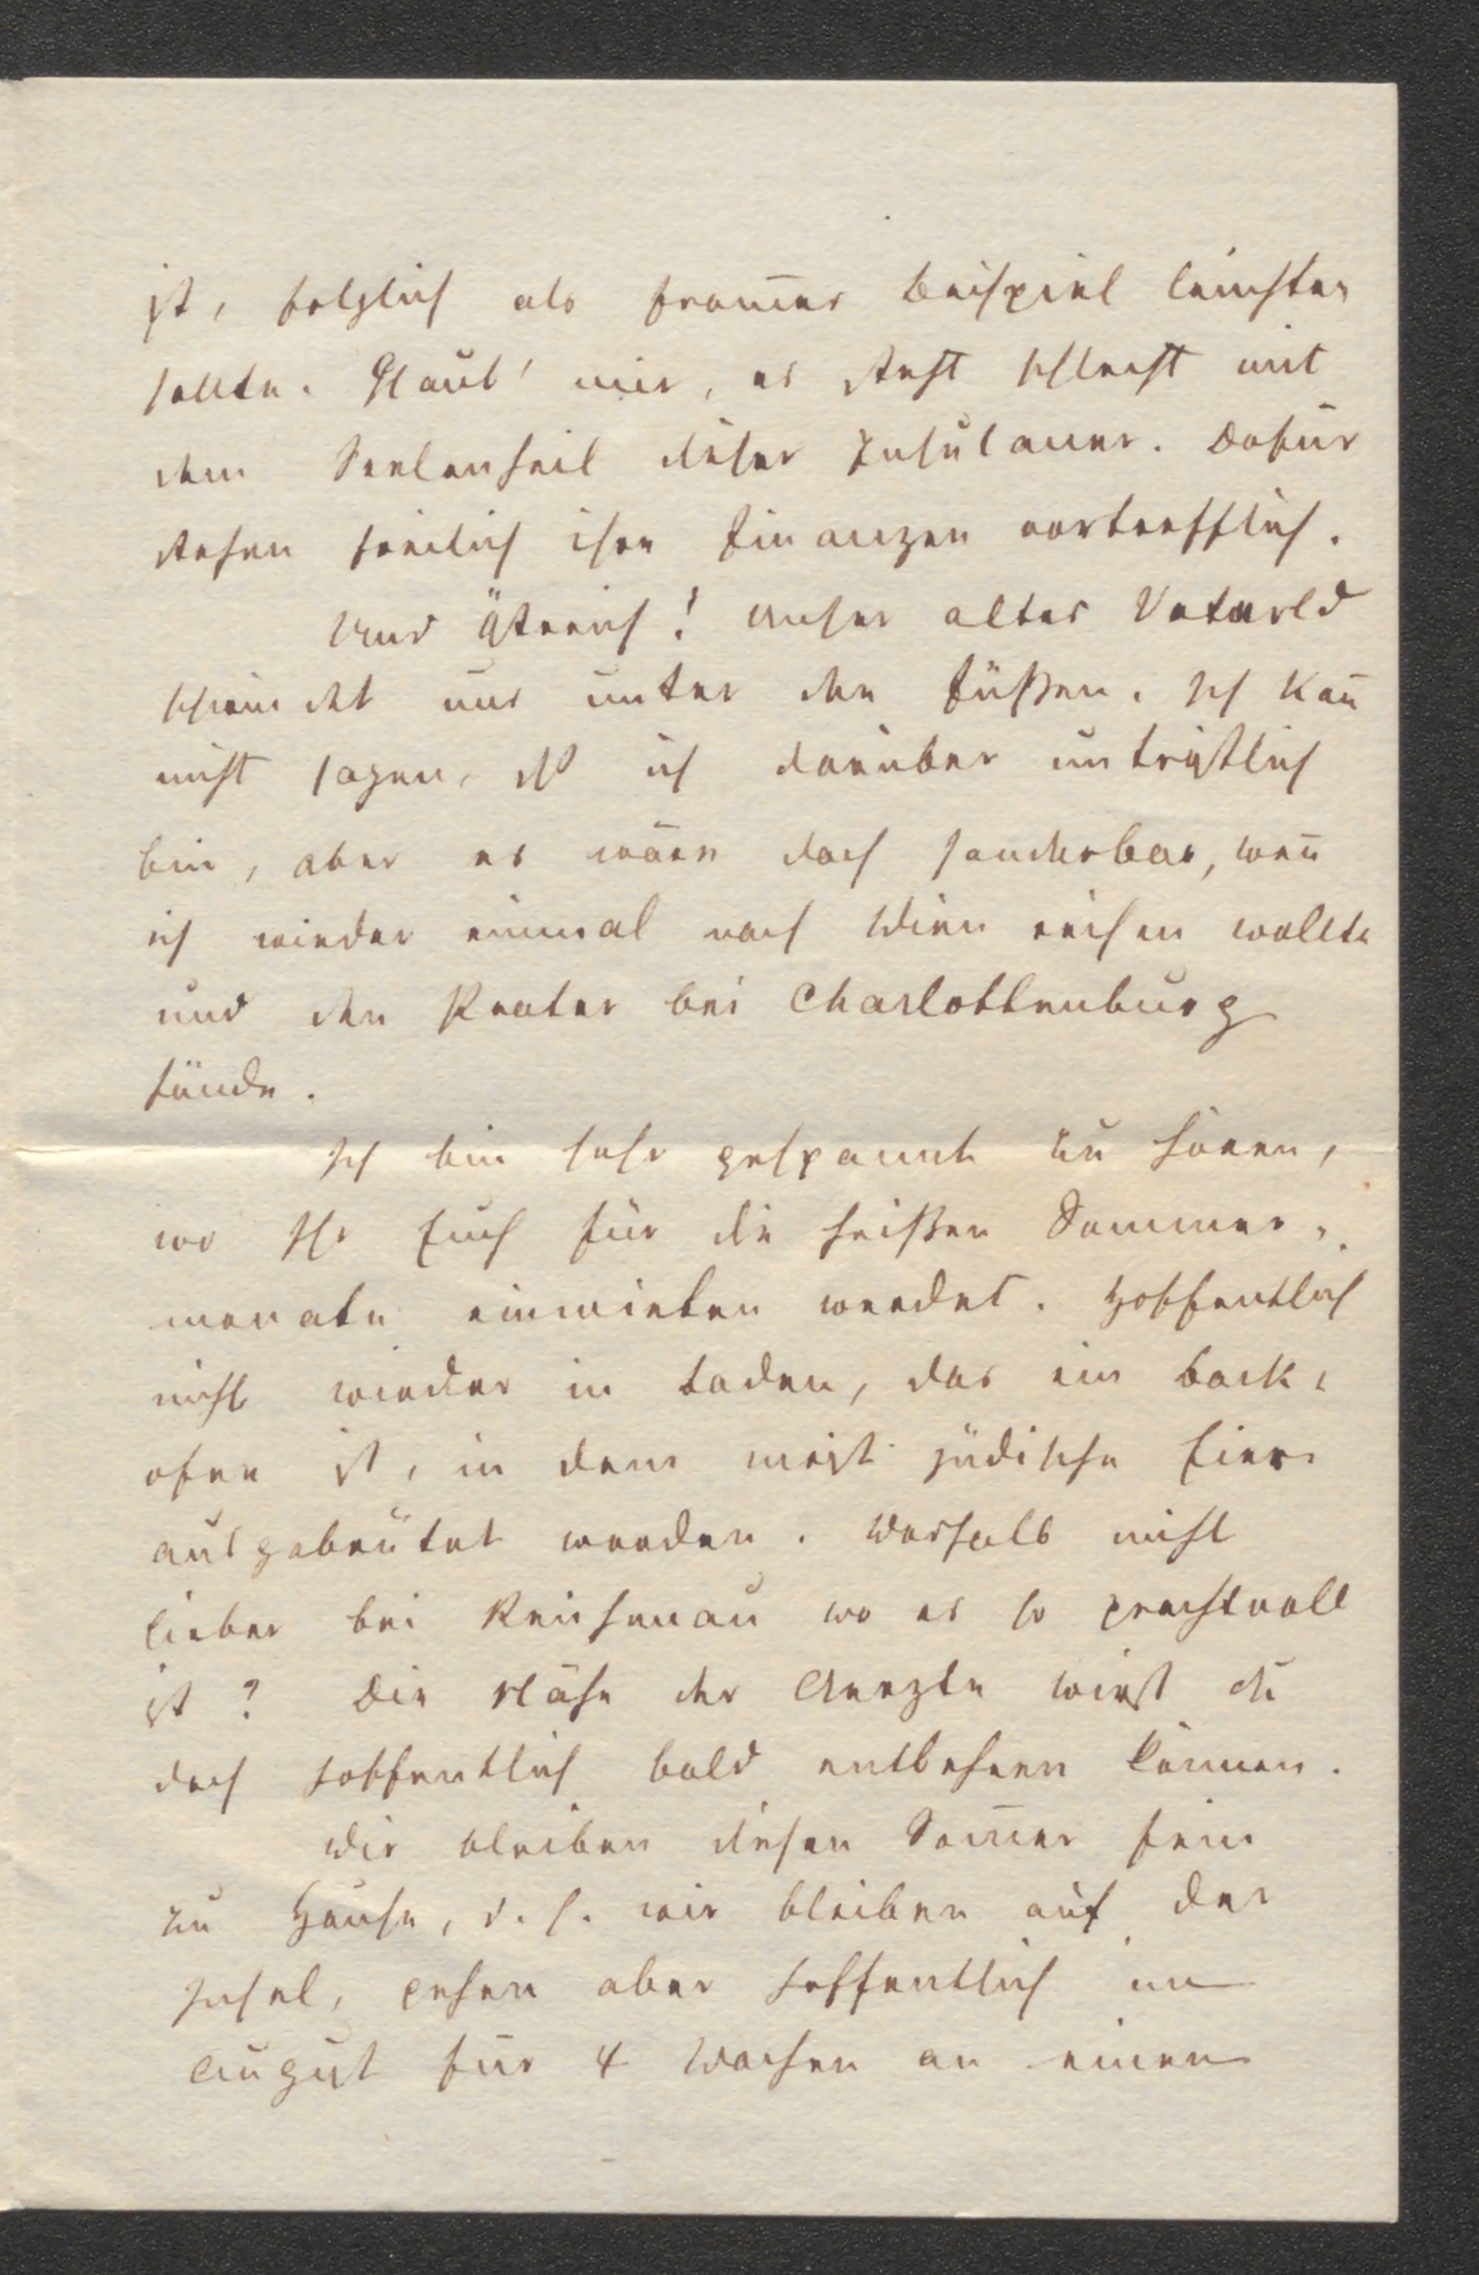 ist, folglich als from̅es Beispiel leuchten
sollte. Glaub' mir, es steht schlecht mit
dem Seelenheil dieser Insulaner. Dafür
stehen freilich ihre Finanzen vortrefflich.
Und Östreich! Unser altes Vaterld
schwindet uns unter den Füßen. Ich kan̅
nicht sagen, dß ich darüber untröstlich
bin, aber es wäre doch sonderbar, wen̅
ich wieder einmal nach Wien reisen wollte
und den Prater bei Charlottenburg
fände.
Ich bin sehr gespannt zu hören,
wo Ihr Euch für die heißen Sommer-
monate einmieten werdet. Hoffentlich
nicht wieder in Baden, das ein Back-
ofen ist, in dem meist jüdische Eier
ausgebrütet werden. Weshalb nicht
lieber bei Reichenau wo es so prachtvoll
ist? Die Nähe der Aerzte wirst du
doch hoffentlich bald entbehren können.
Wir bleiben diesen Som̅er fein
zu Hause, d. h. wir bleiben auf der
Insel, gehen aber hoffentlich im
August für 4 Wochen an einen